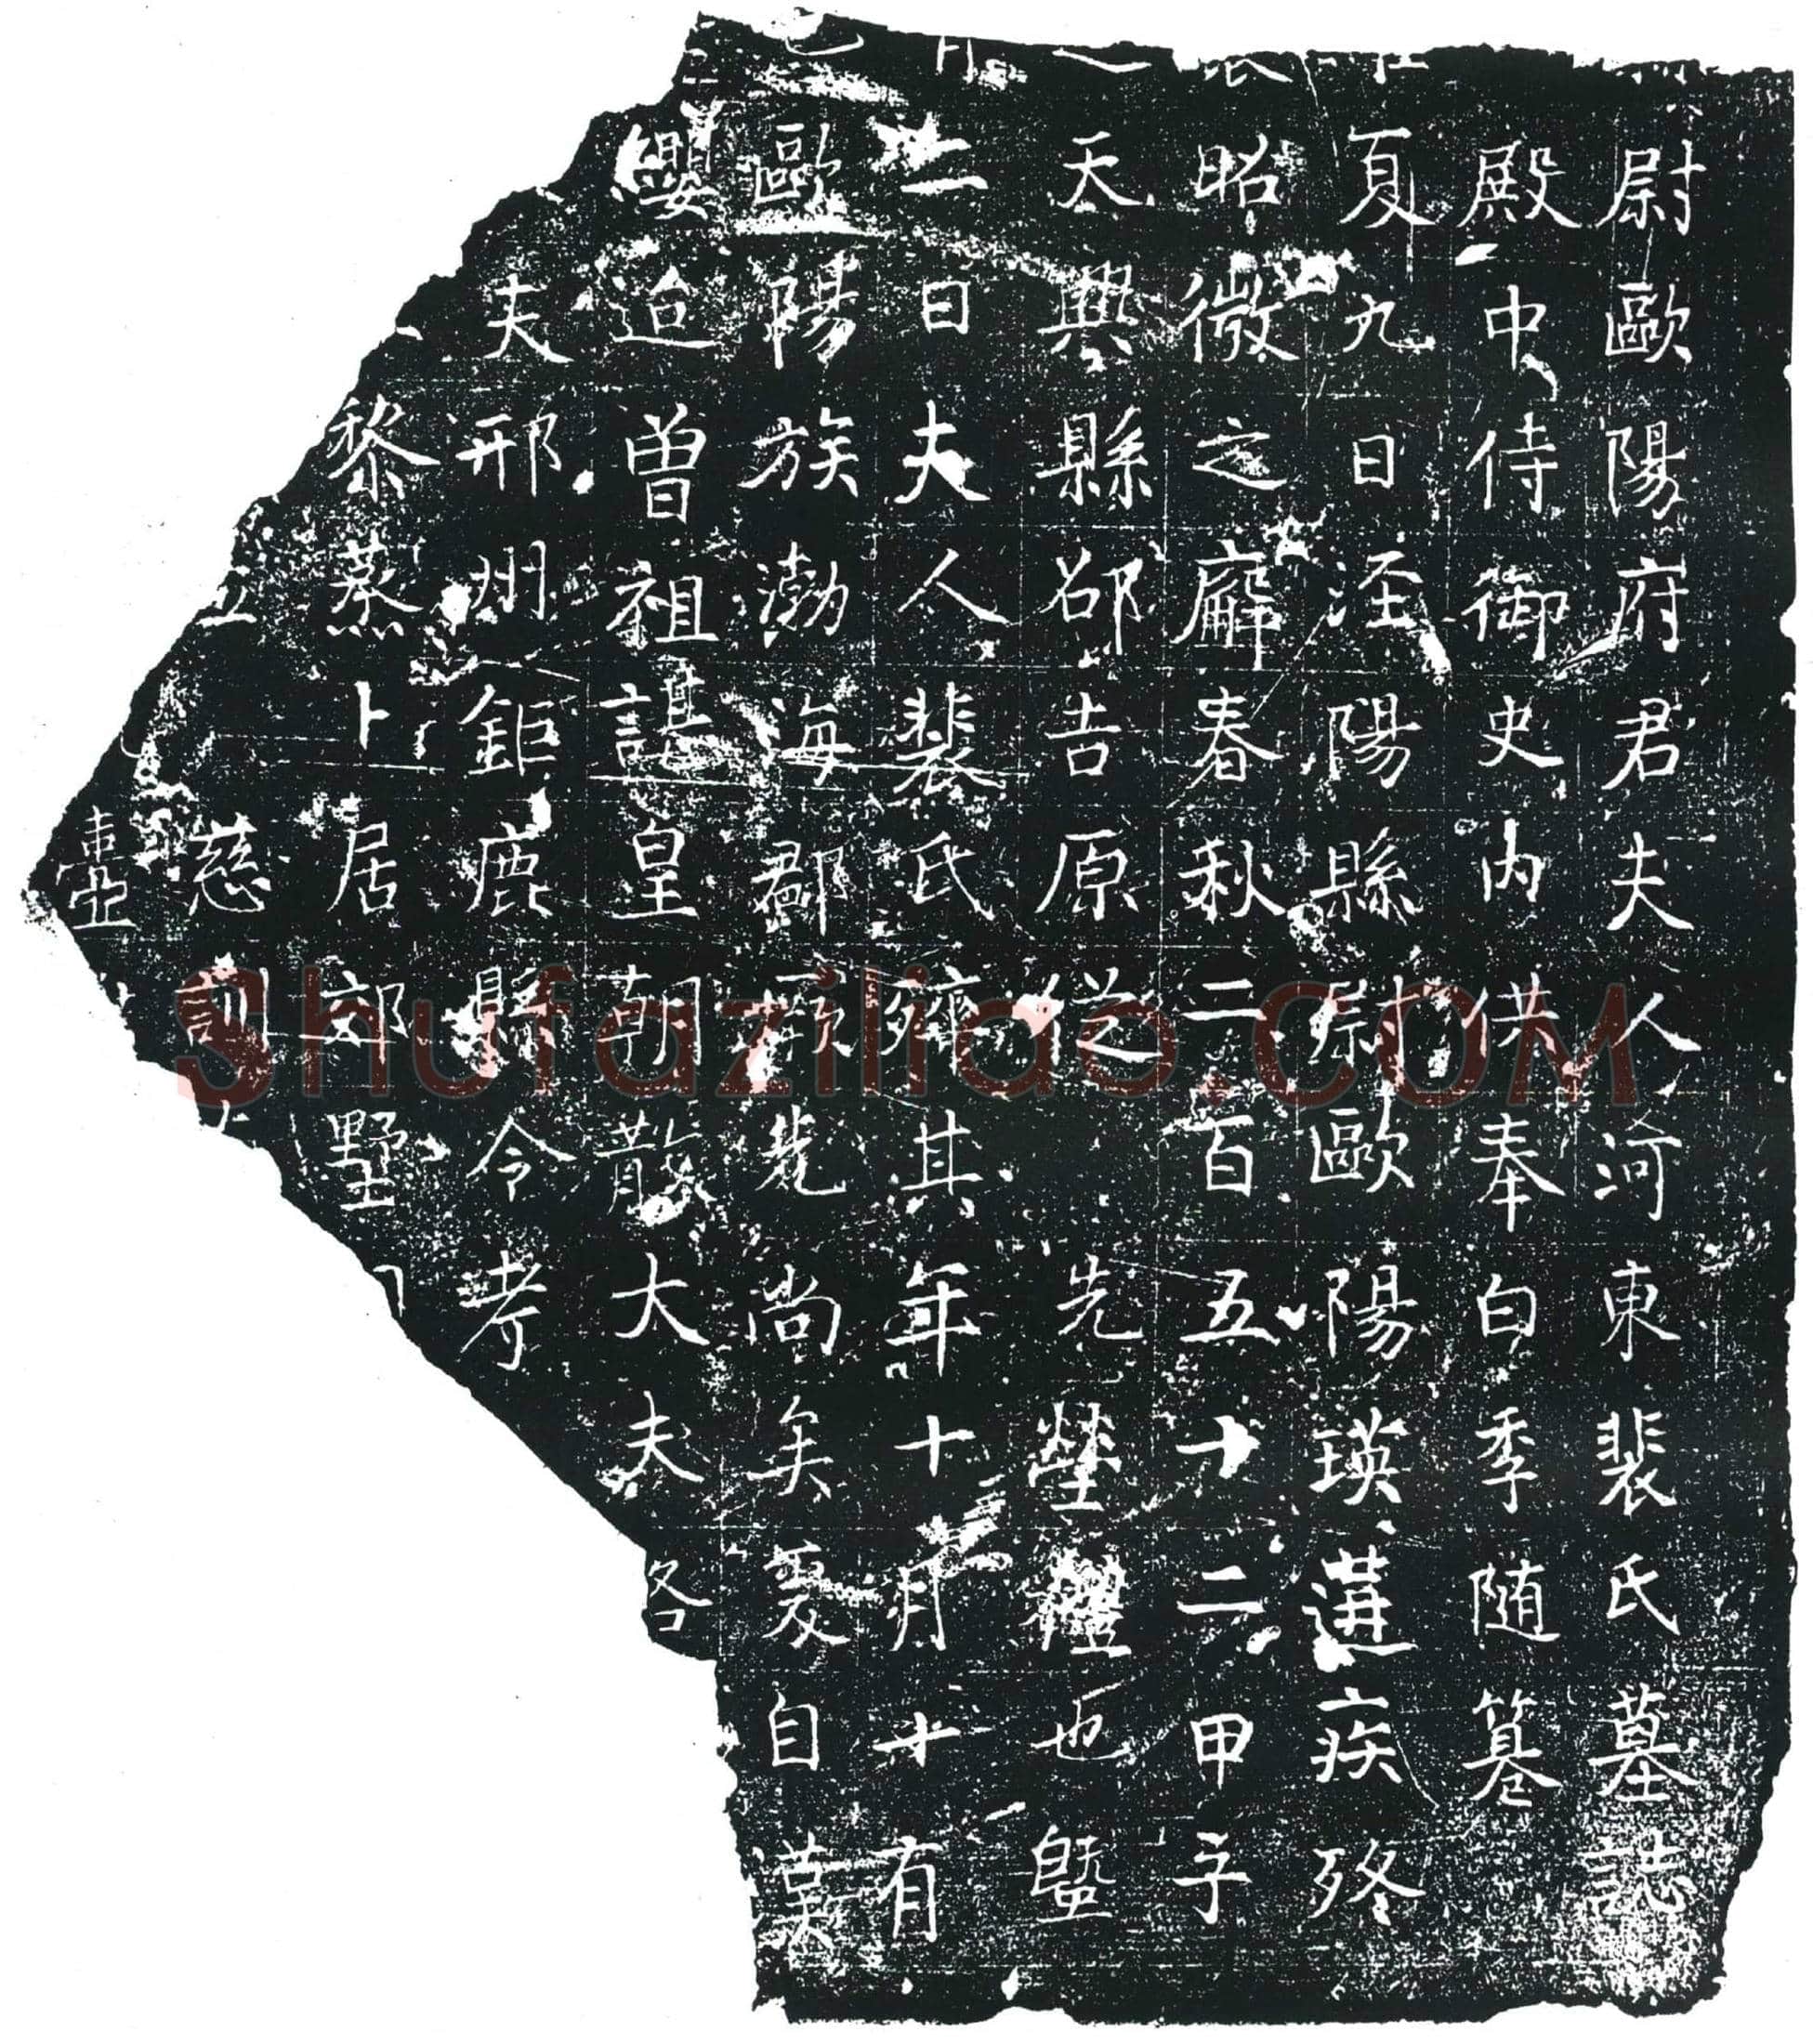 尉歐陽府君夫人河東裴氏墓誌
殿中侍御史內供奉白季随篹
夏九日涇陽縣尉歐陽瑛遘疾終
昭徵之廨春秋二百五十二甲子
天興縣邵吉原從先塋禮也曁
二日夫人裴氏薨其年十月十有
歐陽族渤海郡族茂尚矣爰自漢
纓迨曾祖諶皇朝散大夫
夫邢州鉅鹿縣令考
黎蒸卜居郊墅
慈訓
壼
Shufaziliao.COM